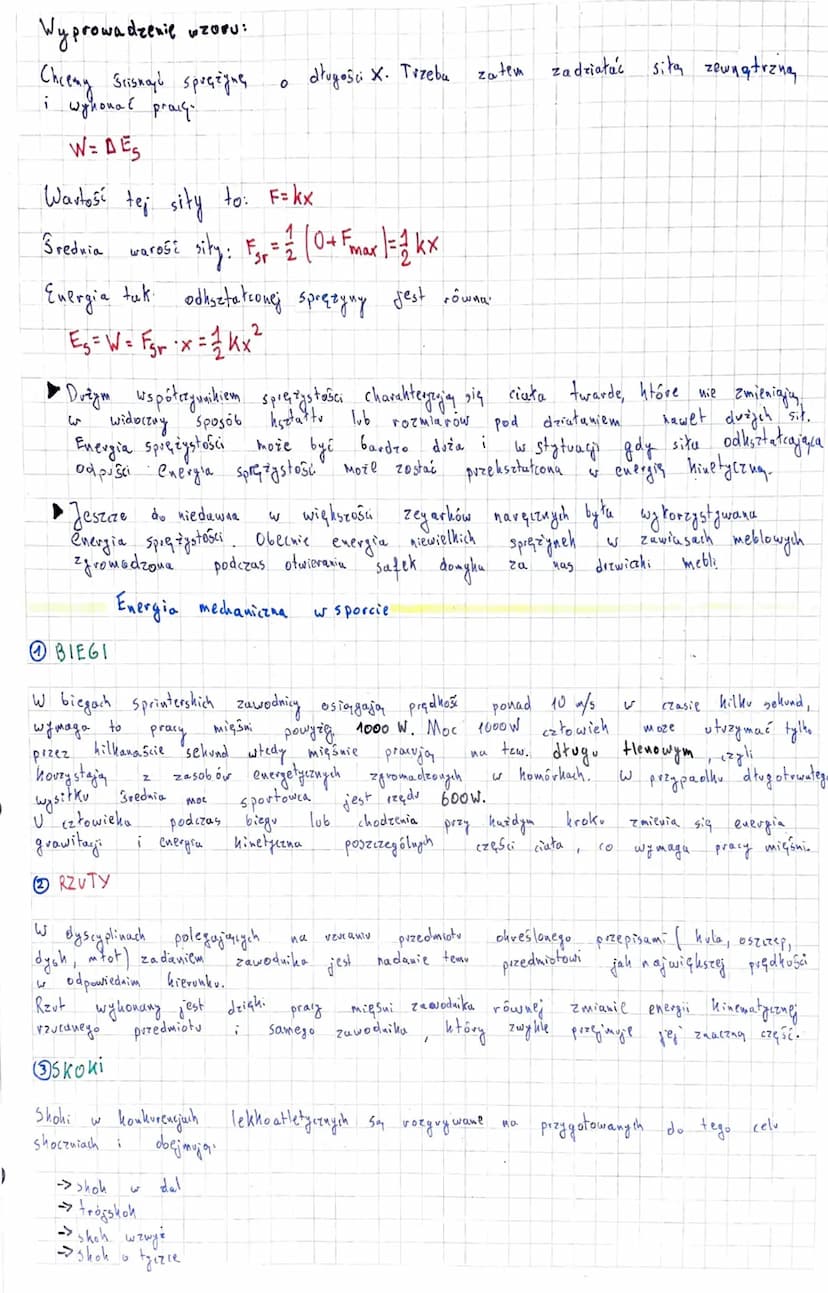 Wyprowadzenie wzoru:
Chcemy ścisnąć sprężynę o długości X. Trzeba zatem zadziałać siłą zewnątrzną
i wykonać pracę.
W = Δ Es
Wartość tej siły to: F=kx
Średnia warość siły: Fśr = 1/2 (0+Fmax) = 1/2 kx
Energia tak odkształconej sprężyny jest równa:
Es = W = Fśr · x = 1/2 kx²
► Dużym współczynnikiem sprężystości charakteryzują się ciała twarde, które nie zmieniają
w widoczny sposób kształtu lub rozmiarów pod działaniem nawet dużych sił.
Energia sprężystości może być bardzo duża i w stytuacji gdy siła odkształcająca
odpuści energia sprężystość może zostać przekształcona w energię kinetyczną.
► Jeszcze do niedawna w większości zegarków naręcznych była wykorzystywana
energia sprężystości. Obecnie energia niewielkich sprężynek w zawiasach meblowych
zgromadzona podczas otwierania szafek domyka za nas drzwiczki mebli.
Energia mechaniczna w sporcie
① BIEGI
W biegach sprinterskich zawodnicy osiągają prędkość ponad 10 m/s w czasie kilku sekund,
wymaga to pracy mięśni powyżej 1000 W. Moc 1000W człowiek może utrzymać tylko
przez kilkanaście sekund wtedy mięśnie pracują na tzw. długu tlenowym, czyli
korzystają z zasobów energetycznych zgromadzonych w komórkach. W przypadku długotrwałego
wysiłku średnia moc sportowca jest rzędu 600W.
U człowieka podczas biegu lub chodzenia przy każdym kroku zmienia się energia
grawitacji i energia kinetyczna poszczególnych części ciała, co wymaga pracy mięśni.
② RZUTY
W dyscyplinach polegających na rzucaniu przedmiotu określonego przepisami (kula, oszczep,
dysk, młot) zadaniem zawodnika jest nadanie temu przedmiotowi jak największej prędkości
w odpowiednim kierunku.
Rzut wykonany jest dzięki pracy mięśni zawodnika równej zmianie energii kinematycznej
rzucanego przedmiotu i samego zawodnika, który zwykle przejmuje jej znaczną część.
③ SKOKI
Skoki w konkurencjach lekkoatletycznych są rozgrywane na przygotowanych do tego celu
skoczniach i obejmują:
-> skok w dal
-> trójskok
-> skok wzwyż
-> skok o tyczce